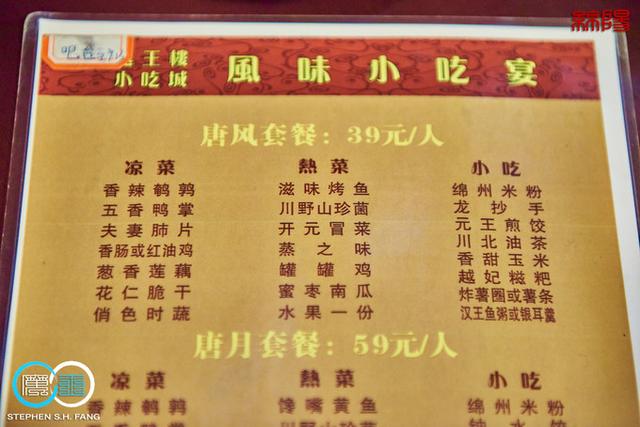 绵阳
吧台
唐王楼
小吃城
風味小吃宴
唐风套餐：39元/人
凉菜 熱菜 小吃
香辣鹌鹑 滋味烤鱼 绵州米粉
五香鸭掌 川野山珍菌 龙抄手
夫妻肺片 开元冒菜 元王煎饺
香肠或红油鸡 蒸之味 川北油茶
葱香莲藕 罐罐鸡 香甜玉米
花仁脆干 蜜枣南瓜 越妃糍粑
俏色时蔬 水果一份 炸薯圈或薯条
汉王鱼粥或银耳羹
唐月套餐：59元/人
凉菜 熱菜 小吃
香辣鹌鹑 馋嘴黄鱼 绵州米粉
STEPHEN S.H. FANG